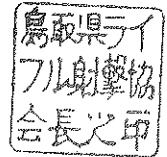 鳥取県ライ
フル射撃協
会長之印